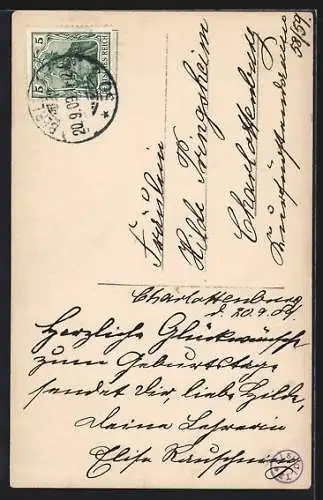 5 5
20.9.09
Fräulein
Hilde Pringsheim
Charlottenburg
Kurfürstendamm
58/59
Charlottenburg
d. 20.9.09.
Herzliche Glückwünsche
zum Geburtstage
sendet Dir, liebe Hilde,
deine Lehrerin
Elise Rauschning